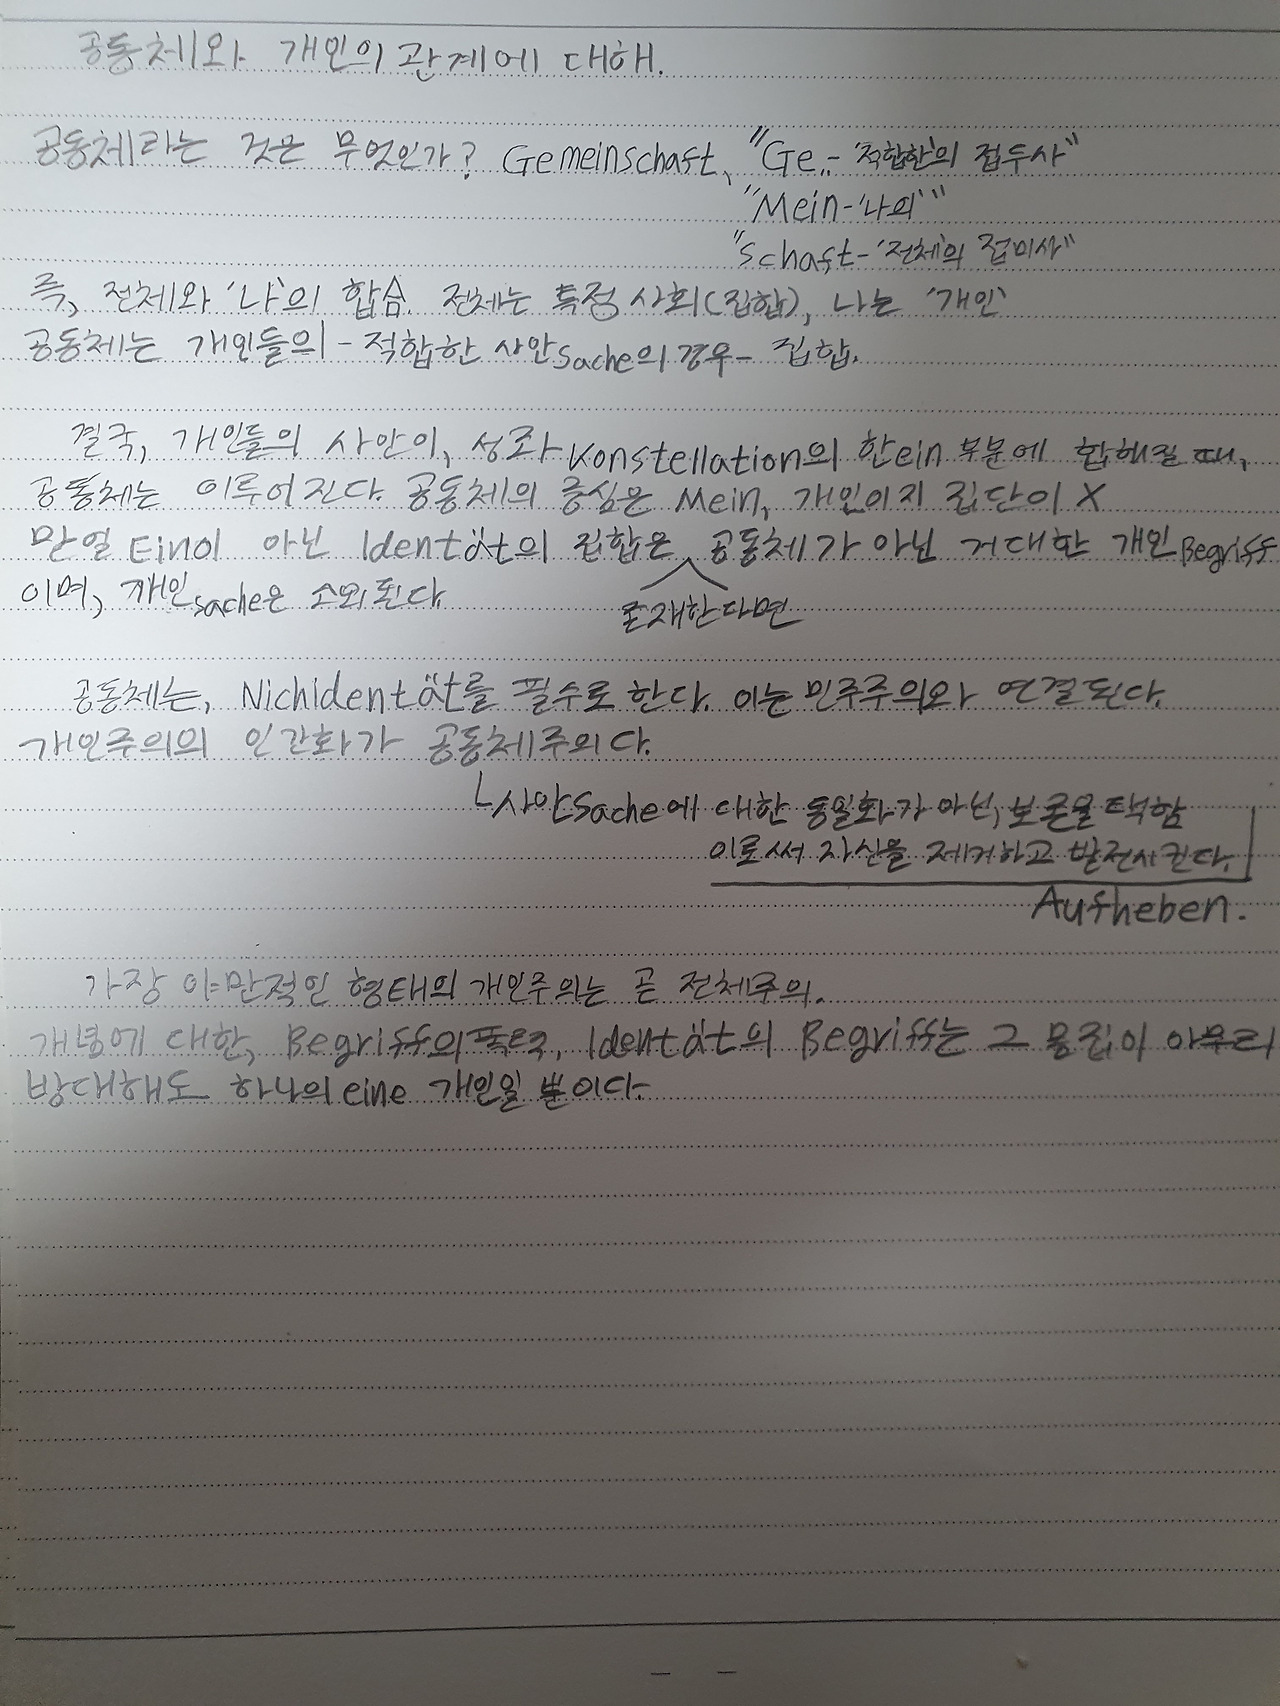 공동체와 개인의 관계에 대해.
공동체라는 것은 무엇인가? Gemeinschaft, "Ge.- '적합한'의 접두사"
"Mein-'나의'"
"schaft-'전체'의 접미사"
즉, 전체와 '나'의 합숨. 전체는 특정 사회(집합), 나는 '개인'
공동체는 개인들의 - 적합한 사안sache의 경우 - 집합.
결국, 개인들의 사안이, 성좌Konstellation의 한ein 부분에 합해질 때,
공동체는 이루어진다. 공동체의 중심은 Mein, 개인이지 집단이 X
만일 Ein이 아닌 Identät의 집합은 공동체가 아닌 거대한 개인Begriff
존재한다면
이며, 개인sache은 소외된다.
공동체는, Nichidentät를 필수로 한다. 이는 민주주의와 연결된다.
개인주의의 인간화가 공동체주의다.
└사안Sache에 대한 동일화가 아닌, 보론을 택함
이로써 자신을 제거하고 발전시킨다.
Aufheben.
가장 야만적인 형태의 개인주의는 곧 전체주의.
개념에 대한, Begriff의 폭력, Identät의 Begriff는 그 뭉침이 아무리
방대해도 하나의eine 개인일 뿐이다.